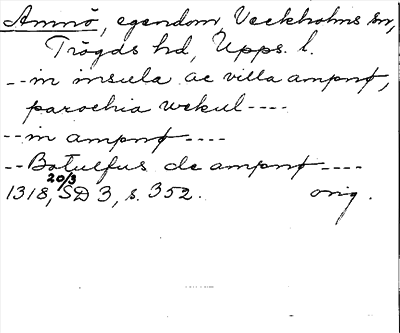 Amnö, egendom, Veckholms sn,
Trögds hd, Upps. l.
-- in insula ac villa ampnø,
parochia wekul ----
-- in ampnø ----
-- Botulfus de ampnø ----
1318, 20/3 SD 3, s. 352. orig.